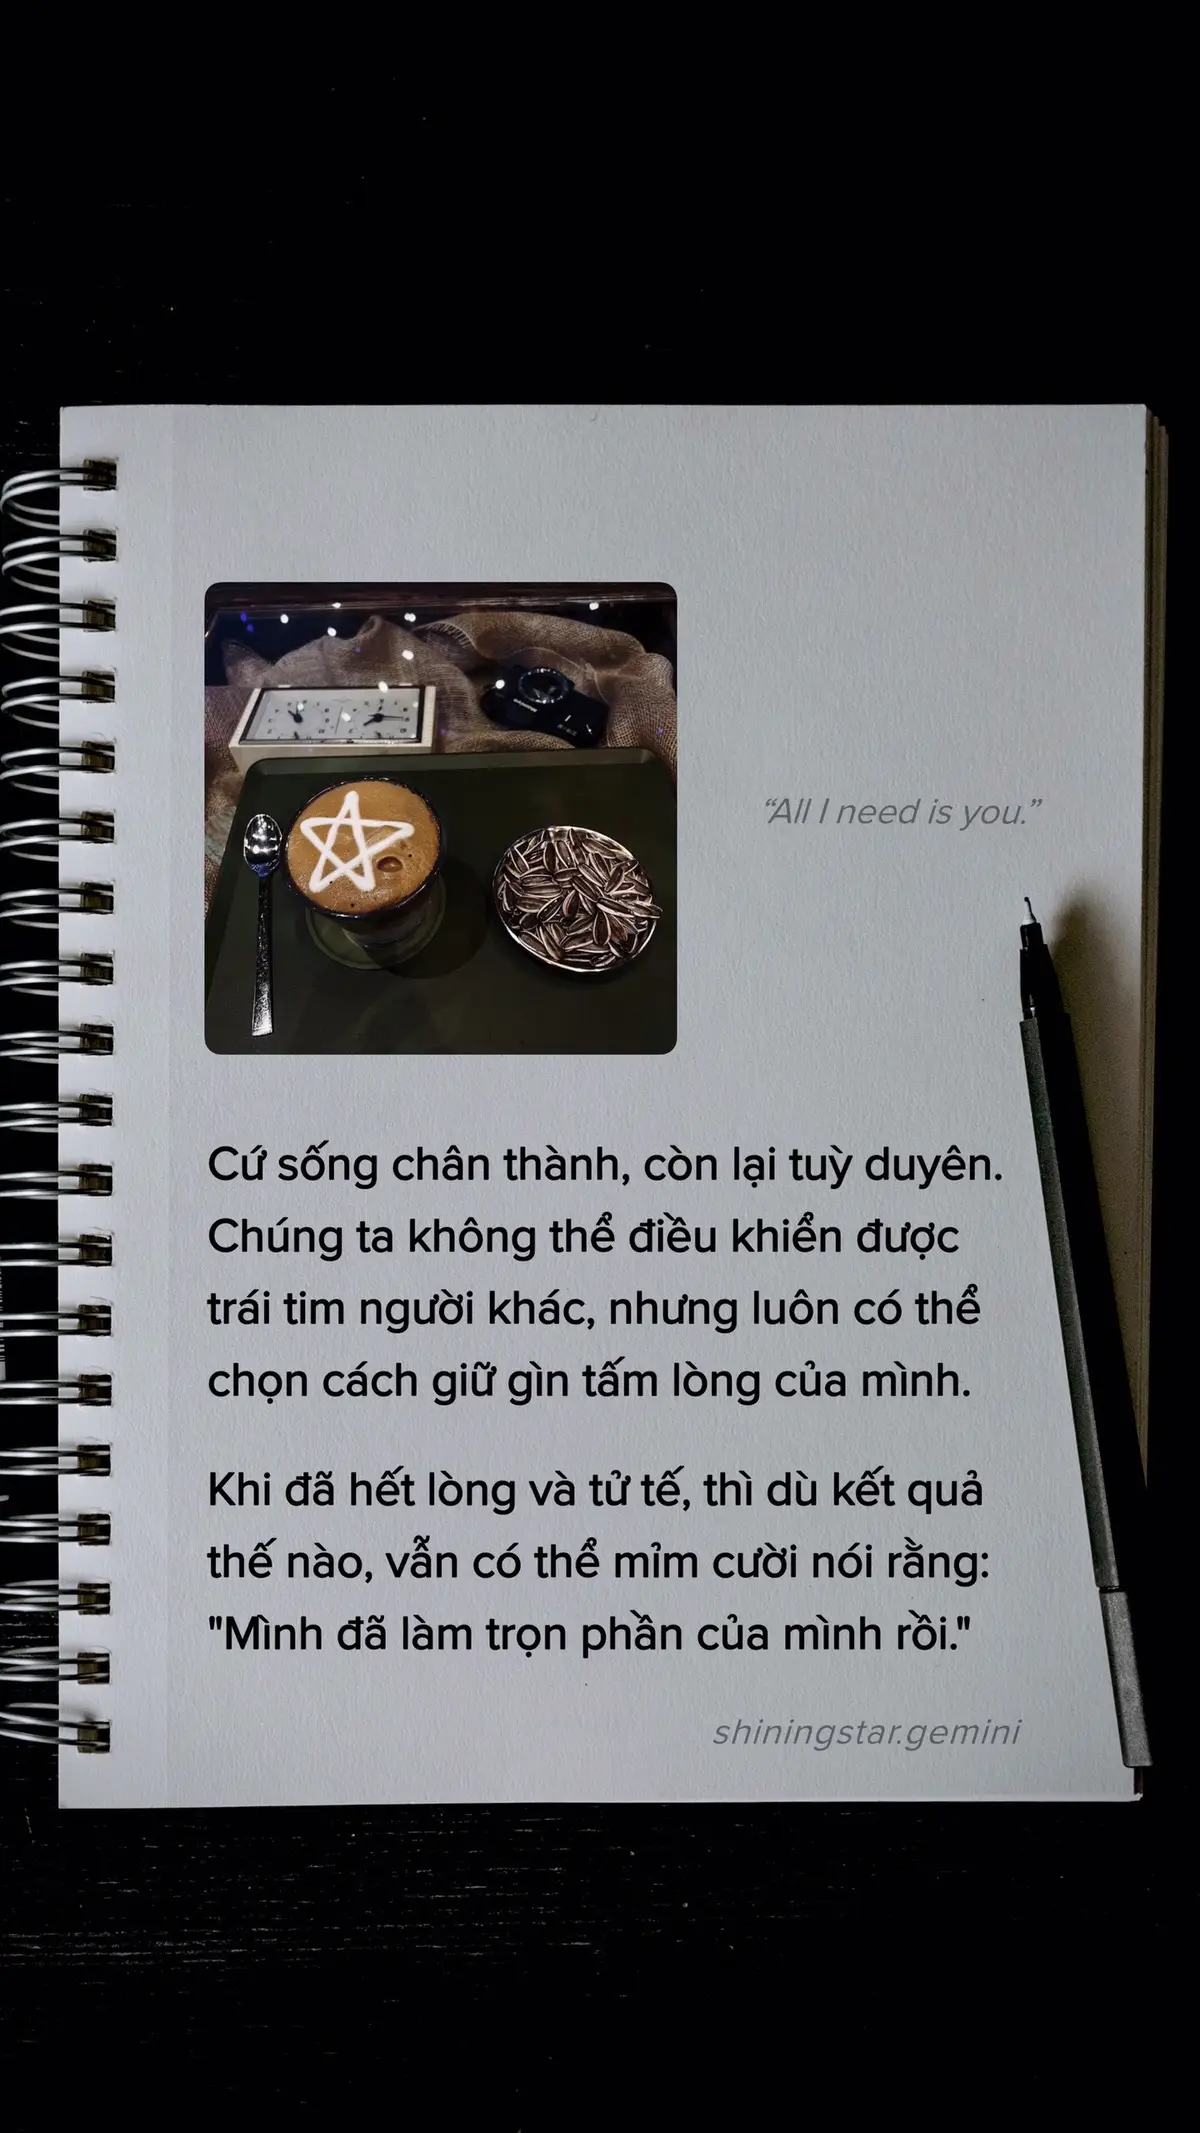 “All I need is you.”
Cứ sống chân thành, còn lại tuỳ duyên.
Chúng ta không thể điều khiển được
trái tim người khác, nhưng luôn có thể
chọn cách giữ gìn tấm lòng của mình.
Khi đã hết lòng và tử tế, thì dù kết quả
thế nào, vẫn có thể mỉm cười nói rằng:
"Mình đã làm trọn phần của mình rồi."
shiningstar.gemini